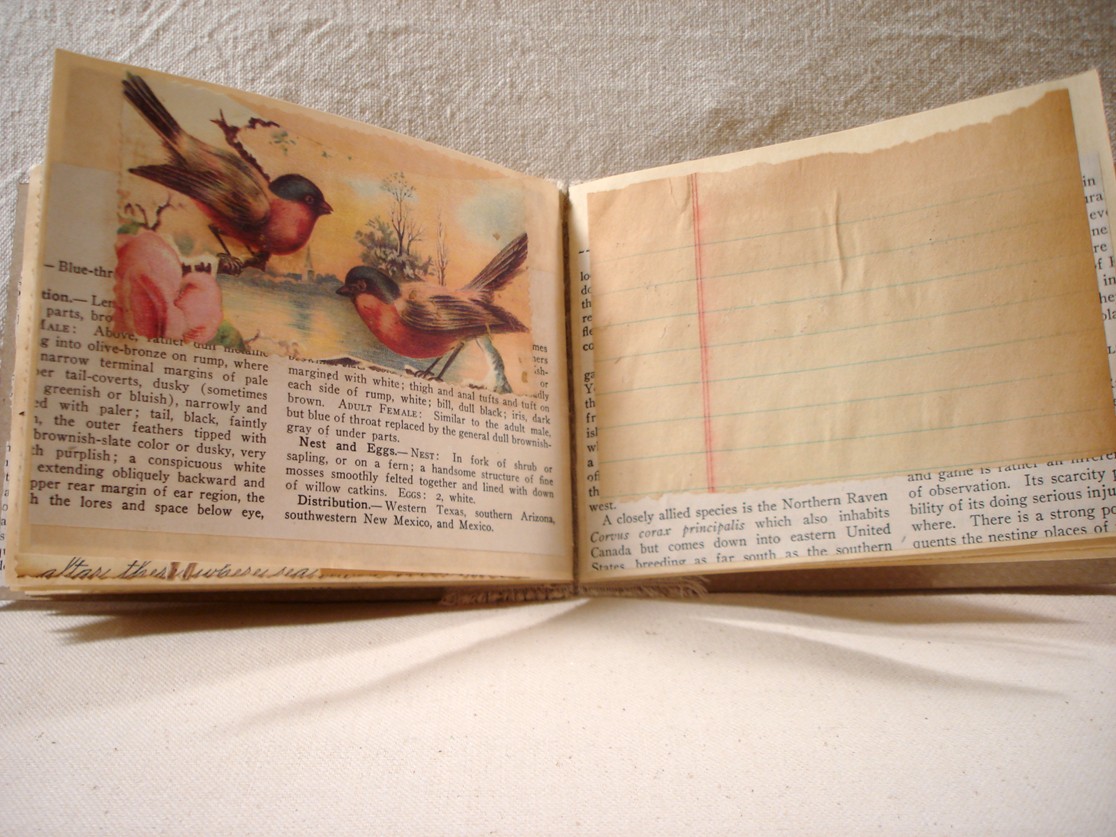 — Blue-thr
tion.— Len
parts, bro
MALE: Above, rather dull metallic
g into olive-bronze on rump, where
narrow terminal margins of pale
per tail-coverts, dusky (sometimes
greenish or bluish), narrowly and
ed with paler; tail, black, faintly
n, the outer feathers tipped with
brownish-slate color or dusky, very
th purplish; a conspicuous white
extending obliquely backward and
pper rear margin of ear region, the
h the lores and space below eye,
mes
hers
ish-
or
dly
margined with white; thigh and anal tufts and tuft on
each side of rump, white; bill, dull black; iris, dark
brown. ADULT FEMALE: Similar to the adult male,
but blue of throat replaced by the general dull brownish-
gray of under parts.
Nest and Eggs.—NEST: In fork of shrub or
sapling, or on a fern; a handsome structure of fine
mosses smoothly felted together and lined with down
of willow catkins. EGGS: 2, white.
Distribution.—Western Texas, southern Arizona,
southwestern New Mexico, and Mexico.
lo
do
th
re
fle
co
ga
Y
fr
isl
w
a
of
th
west.
A closely allied species is the Northern Raven
Corvus corax principalis which also inhabits
Canada but comes down into eastern United
States, breeding as far south as the southern
and game is rather an inferen
of observation. Its scarcity
bility of its doing serious injur
where. There is a strong po
quents the nesting places of
in
ura
eve
ne
re
of
in
he
pla